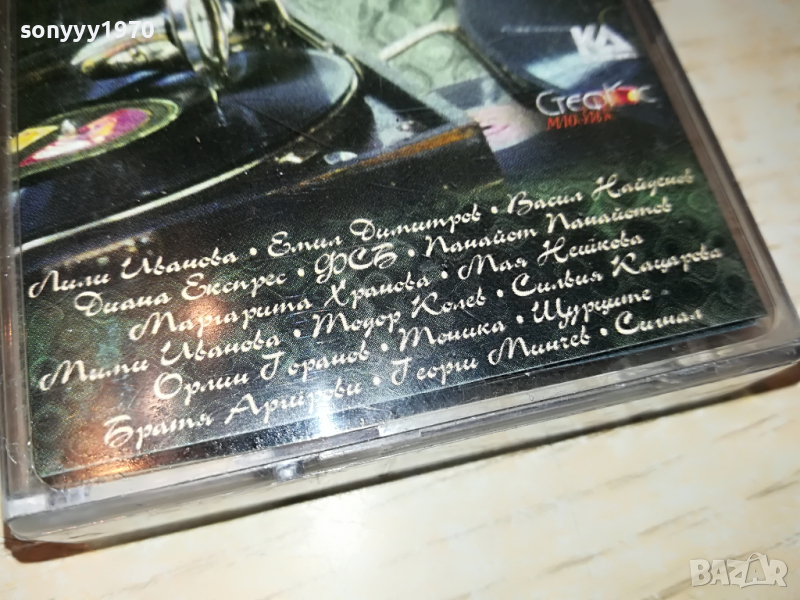 sonyyy1970
KA
СтефКос
МЮЗИК
Лили Иванова • Емил Димитров • Васил Найденов
Диана Експрес • ФСБ • Панайот Панайотов
Маргарита Хранова • Мая Нешкова
Мими Иванова • Тодор Колев • Силвия Кацарова
Орлин Горанов • Тоника • Щурците
Братя Аргирови • Георги Минчев • Сигнал
BAZAR